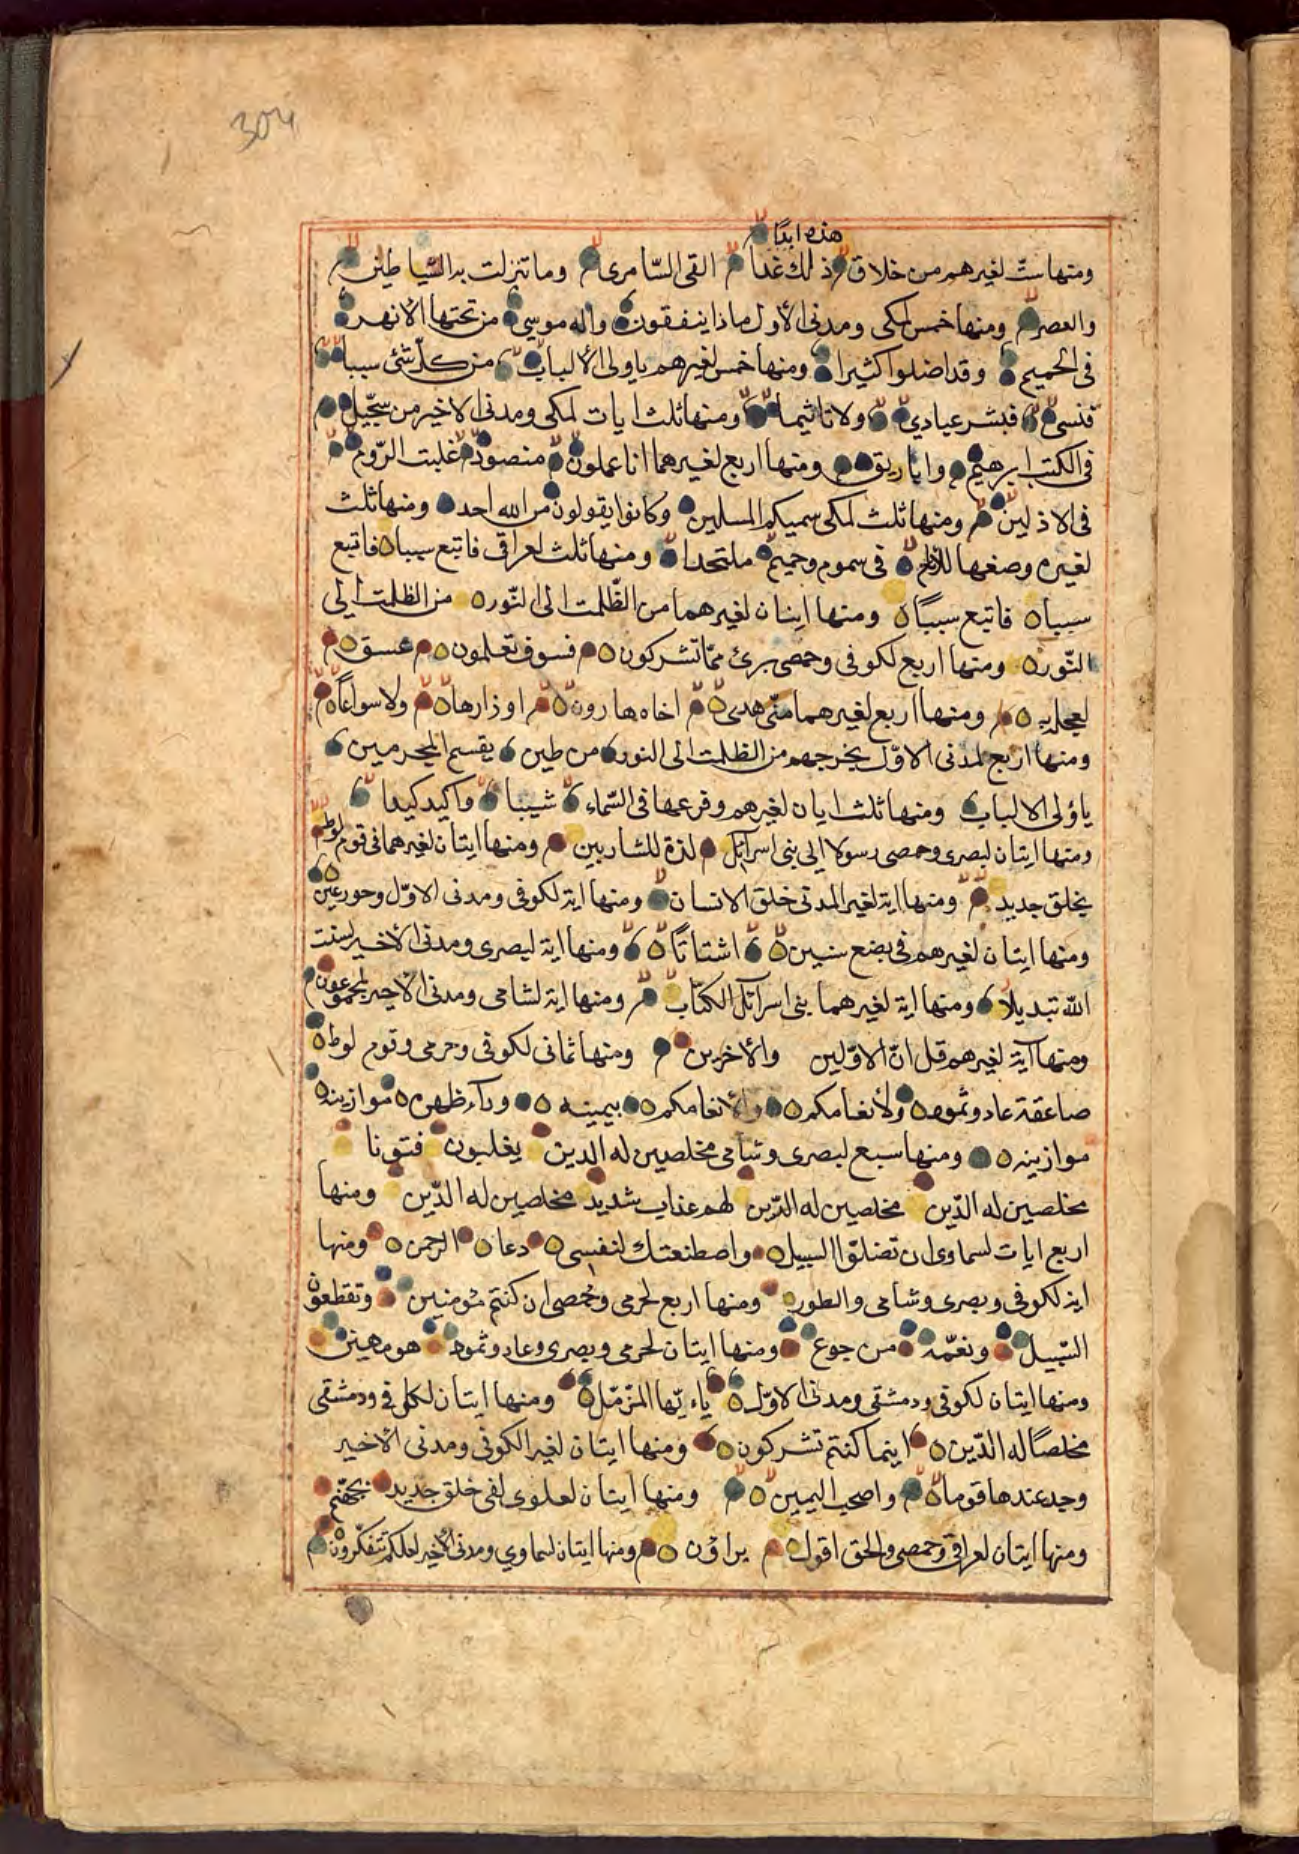 304
هذه ابدًا
ومنها ستّ لغيرهم من خلاق ذلك غدا القى السّامرى وما تنزلت به الشّياطين
والعصر ومنها خمس لمكى ومدنى الأول ماذا ينفقون واله موسى من تحتها الانهر
فى الحميم وقد اضلوا كثيرا ومنها خمس لغيرهم ياولى الألباب من كلّ شئ سببا
فنسى فبشر عبادي ولا تاثيما ومنها ثلث ايات لمكى ومدنى الاخير من سجّيل
فى الكتب ابرهيم واباريق ومنها اربع لغيرهما انا عملون منضود غلبت الرّوم
فى الاذلين ومنها ثلث لمكى سميكم المسلمين وكانوا يقولون من الله احد ومنها ثلث
لغيره وضعها للانام فى سموم وحميم ملتحدا ومنها ثلث لعراقى فاتبع سببا فاتبع
سببا فاتبع سببًا ومنها ايتان لغيرهما من الظّلمت الى النّور من الظلمت الى
النّور ومنها اربع لكوفى وحمصى برئ ممّا تشركون فسوف تعلمون عسق
لعجل به ومنها اربع لغيرهما منّى هدى اخاه هارون اوزارها ولا سواعًا
ومنها اربع لمدنى الاوّل يخرجهم من الظلمت الى النور من طين يقسم المجرمين
ياؤلى الالباب ومنها ثلث ايان لغيرهم وفرعها فى السّماء شيبا واكيد كيدا
ومنها ايتان لبصرى وحمصى رسولا الى بنى اسرآئل لذة للشاربين ومنها ايتان لغيرهما فى قوم لوط
بخلق جديد ومنها اية لغير المدنى خلق الانسان ومنها اية لكوفى ومدنى الاوّل وحور عين
ومنها ايتان لغيرهم فى بضع سنين اشتاتًا ومنها اية لبصرى ومدنى الأخير لسنت
الله تبديلا ومنها اية لغيرهما بنى اسرآئل الكتاب ومنها اية لشامى ومدنى الاخير لمجموعون
ومنها آية لغيرهم قل انّ الاوّلين والأخرين ومنها ثمانى لكوفى وحرمى وقوم لوط
صاعقة عاد وثمود ولأنعامكم ولأنعامكم بيمينه ورآء ظهره موازينه
موازينه ومنها سبع لبصرى وشامى مخلصين له الدين يغلبون فتونا
مخلصين له الدّين مخلصين له الدّين لهم عذاب شديد مخلصين له الدّين ومنها
اربع ايات لسماوى ان تضلّوا السبيل واصطنعتك لنفسى دعان الرحمن ومنها
اية لكوفى وبصرى وشامى والطور ومنها اربع لحرمى وحمصى ان كنتم مؤمنين وتقطعون
السّبيل ونعمّه من جوع ومنها ايتان لحرمى وبصرى وعاد وثمود هو مهين
ومنها ايتان لكوفى ودمشقى ومدنى الاوّل ياءيّها المزمّل ومنها ايتان لكوفى ودمشقى
مخلصًا له الدّين اينما كنتم تشركون ومنها ايتان لغير الكوفى ومدنى الاخير
وجد عندها قوما واصحب اليمين ومنها ايتان لعلوى لفى خلق جديد بجهنّم
ومنها ايتان لعراقى وحمصى والحق اقول يراؤن ومنها ايتان لسماوي ومدنى الأخير لعلكم تتفكّرون